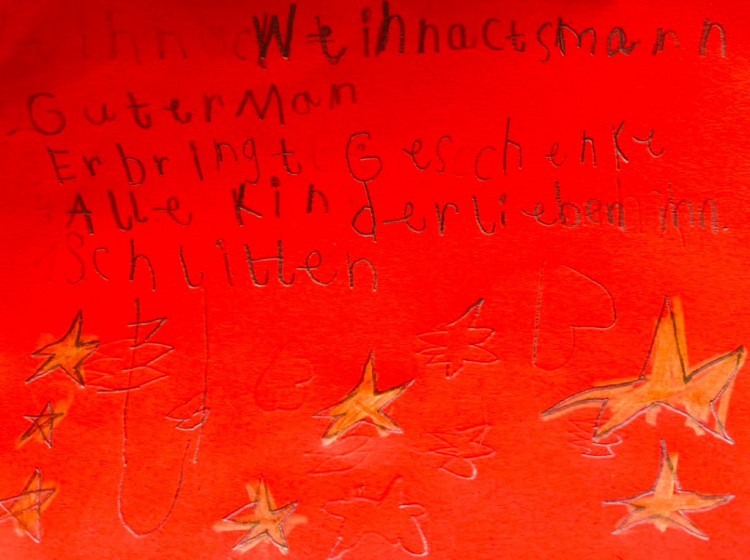 Weihnactsmann
Guter Man
Er bringt Geschenke
Alle Kinder lieben ihn.
Schlitten